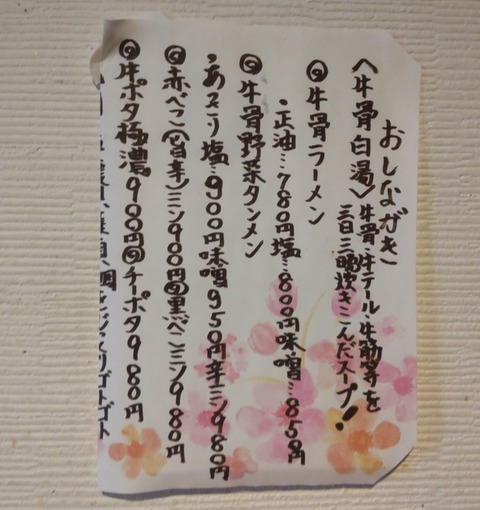 おしながき
〈牛骨白湯〉牛骨・牛テール・牛筋等を
三日三晩炊きこんだスープ!
◎牛骨ラーメン
・正油…780円塩…800円味噌…850円
◎牛骨野菜タンメン
・あっさり塩…900円味噌950円辛ミソ980円
◎赤べこ(旨辛)ミソ900円◎黒べこミソ980円
◎牛ポタ極濃900円◎チーポタ980円